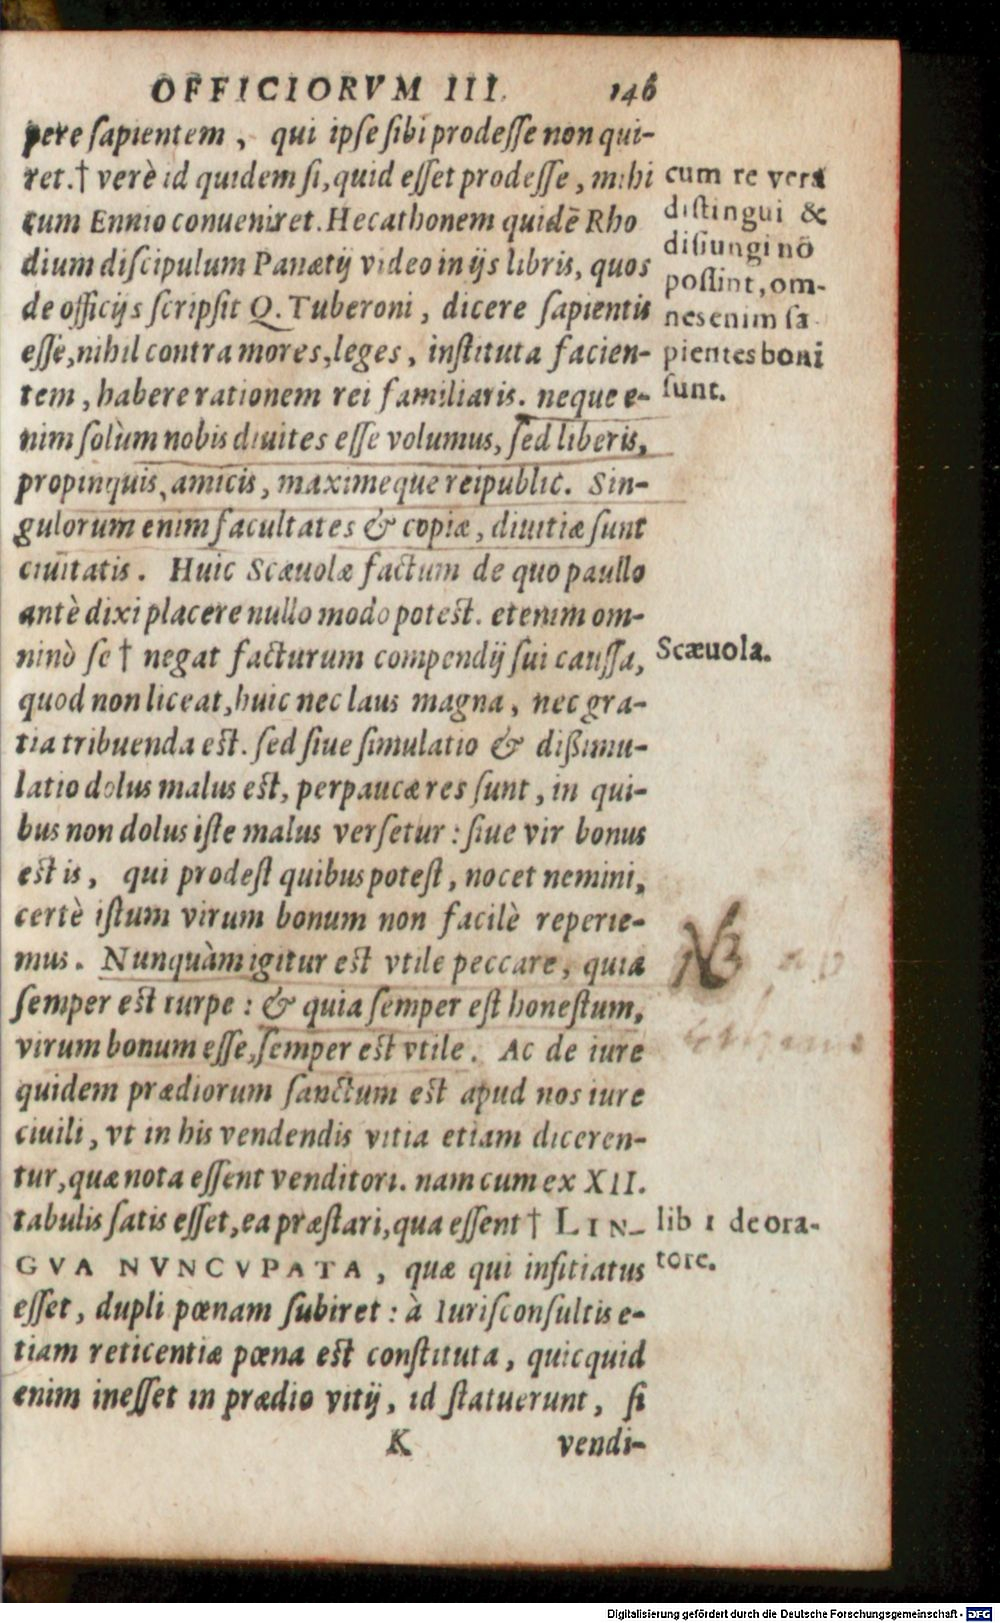 OFFICIORVM III. 146
pere sapientem, qui ipse sibi prodesse non qui-
ret.† verè id quidem si, quid esset prodesse, mihi
cum Ennio conueniret. Hecathonem quidē Rho
dium discipulum Panætij video in ijs libris, quos
de officijs scripsit Q. Tuberoni, dicere sapientis
esse, nihil contra mores, leges, instituta facien-
tem, habere rationem rei familiaris. neque e-
nim solùm nobis diuites esse volumus, sed liberis,
propinquis, amicis, maximeque reipublic. Sin-
gulorum enim facultates & copiæ, diuitiæ sunt
ciuitatis. Huic Scæuolæ factum de quo paullo
antè dixi placere nullo modo potest. etenim om-
ninò se † negat facturum compendij sui caussa,
quod non liceat, huic nec laus magna, nec gra-
tia tribuenda est. sed siue simulatio & dißimu-
latio dolus malus est, perpaucæ res sunt, in qui-
bus non dolus iste malus versetur: siue vir bonus
est is, qui prodest quibus potest, nocet nemini,
certè istum virum bonum non facilè reperie-
mus. Nunquàm igitur est vtile peccare, quia
semper est turpe: & quia semper est honestum,
virum bonum esse, semper est vtile. Ac de iure
quidem prædiorum sanctum est apud nos iure
ciuili, vt in his vendendis vitia etiam diceren-
tur, quæ nota essent venditori. nam cum ex XII.
tabulis satis esset, ea præstari, qua essent † LIN-
GVA NVNCVPATA, quæ qui insitiatus
esset, dupli pœnam subiret: à Iurisconsultis e-
tiam reticentiæ pœna est constituta, quicquid
enim inesset in prædio vitij, id statuerunt, si
K vendi-
cum re vera
distingui &
disiungi nō
possint, om-
nes enim sa
pientes boni
sunt.
Scæuola.
NB
lib 1 de ora-
tore.
Digitalisierung gefördert durch die Deutsche Forschungsgemeinschaft - DFG